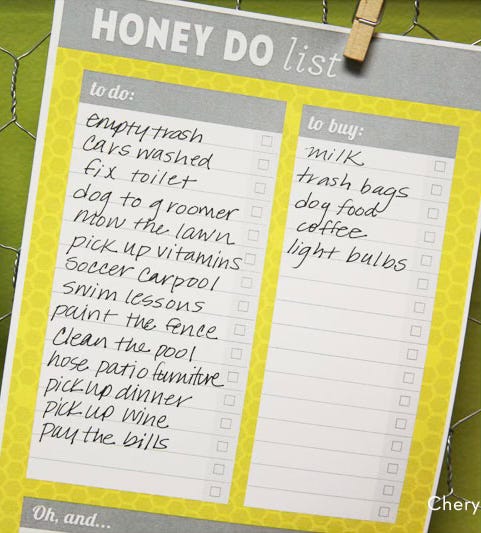 HONEY DO list
to do:
empty trash
cars washed
fix toilet
dog to groomer
mow the lawn
pick up vitamins
soccer carpool
swim lessons
paint the fence
clean the pool
hose patio furniture
pick up dinner
pick up wine
pay the bills
to buy:
milk
trash bags
dog food
coffee
light bulbs
Oh, and...
Chery